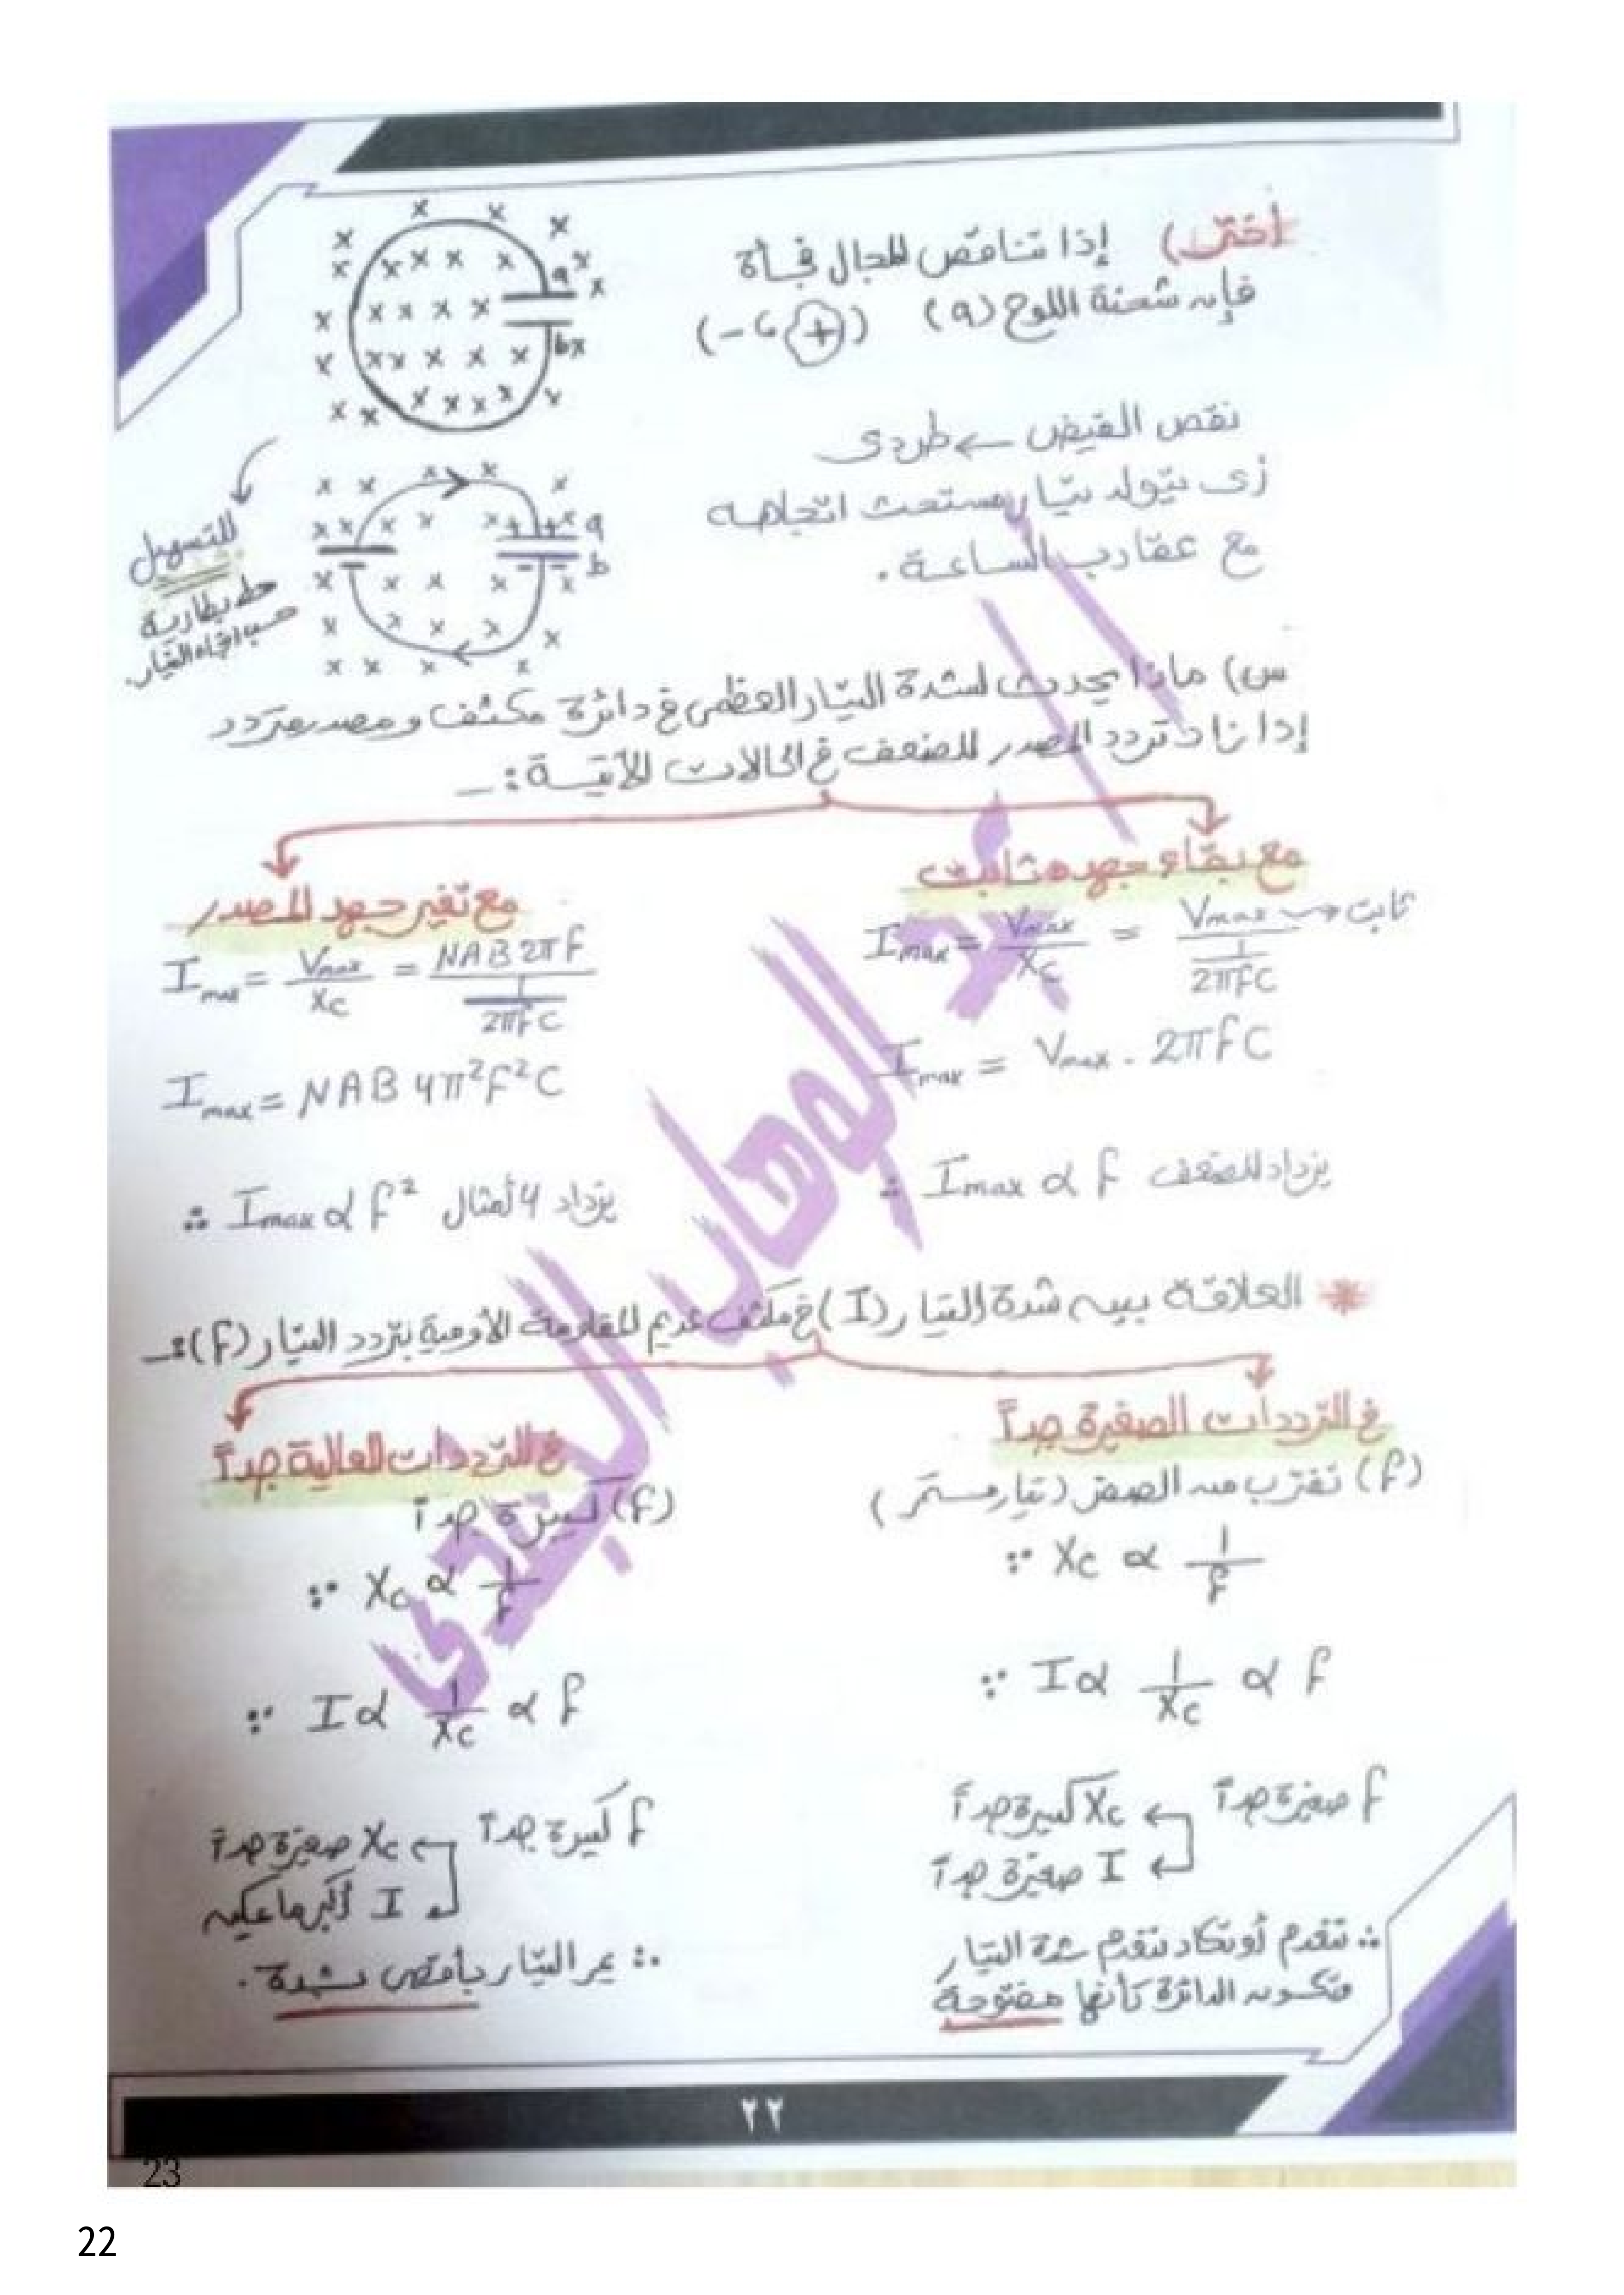 أختر) إذا تناقص المجال فجأة
فإن شحنة اللوح (a) (+ ، -)
a
b
نقص الفيض ← طردى
زى بيتولد تيار مستحث اتجاهه
مع عقارب الساعة .
a
b
للتسهيل
حط بطارية
حسب اتجاه التيار.
س) ماذا يحدث لشدة التيار العظمى فى دائرة مكثف ومصدر متردد
إذا زاد تردد المصدر للضعف فى الحالات الآتية :-
مع بقاء جهده ثابت
I max = Vmax / Xc = Vmax / (1 / 2πfC) → ثابت
I max = Vmax . 2πfC
∴ Imax α f يزداد للضعف
مع تغير جهد المصدر
I max = Vmax / Xc = NAB 2πf / (1 / 2πfC)
I max = NAB 4π²f²C
∴ Imax α f² يزداد 4 أمثال
* العلاقة بين شدة التيار (I) فى مكثف عديم المقاومة الأومية بتردد التيار (f) :-
فى الترددات الصغيرة جداً
(f) تقترب من الصفر (تيار مستمر)
∵ Xc α 1/f
∵ I α 1/Xc α f
f صغيرة جداً ← Xc كبيرة جداً
← I صغيرة جداً
∴ تنعدم أو تكاد تنعدم شدة التيار
وتكون الدائرة كأنها مفتوحة
فى الترددات العالية جداً
(f) كبيرة جداً
∵ Xc α 1/f
∵ I α 1/Xc α f
f كبيرة جداً ← Xc صغيرة جداً
← I أكبر ما يمكن
∴ يمر التيار بأقصى شدة .
عبد الوهاب الجندى
٢٢
23
22